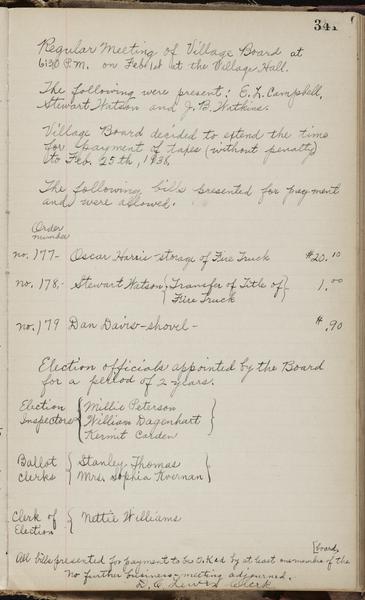 341
Regular Meeting of Village Board at
6:30 P.M. on Feb 1st at the Village Hall.
The following were present: E. L. Campbell,
Stewart Watson and J. B. Watkins.
Village Board decided to extend the time
for payment of taxes (without penalty)
to Feb. 25th, 1936.
The following bills presented for payment
and were allowed.
Order
number
no. 177- Oscar Harris - storage of Fire Truck $20.10
no. 178,- Stewart Watson, {Transfer of Title of} 1.00
Fire Truck
no. 179 Dan Davis - shovel - $.90
Election officials appointed by the Board
for a period of 2 years.
Election { Millie Peterson
Inspectors William Dagenhart }
Kermit Carden
Ballot { Stanley Thomas }
Clerks Mrs. Sophia Kvernan
Clerk of { Nettie Williams
Election
[board
All bills presented for payment to be O.K.ed by at least one member of the
No further business - meeting adjourned.
Lewis Clerk